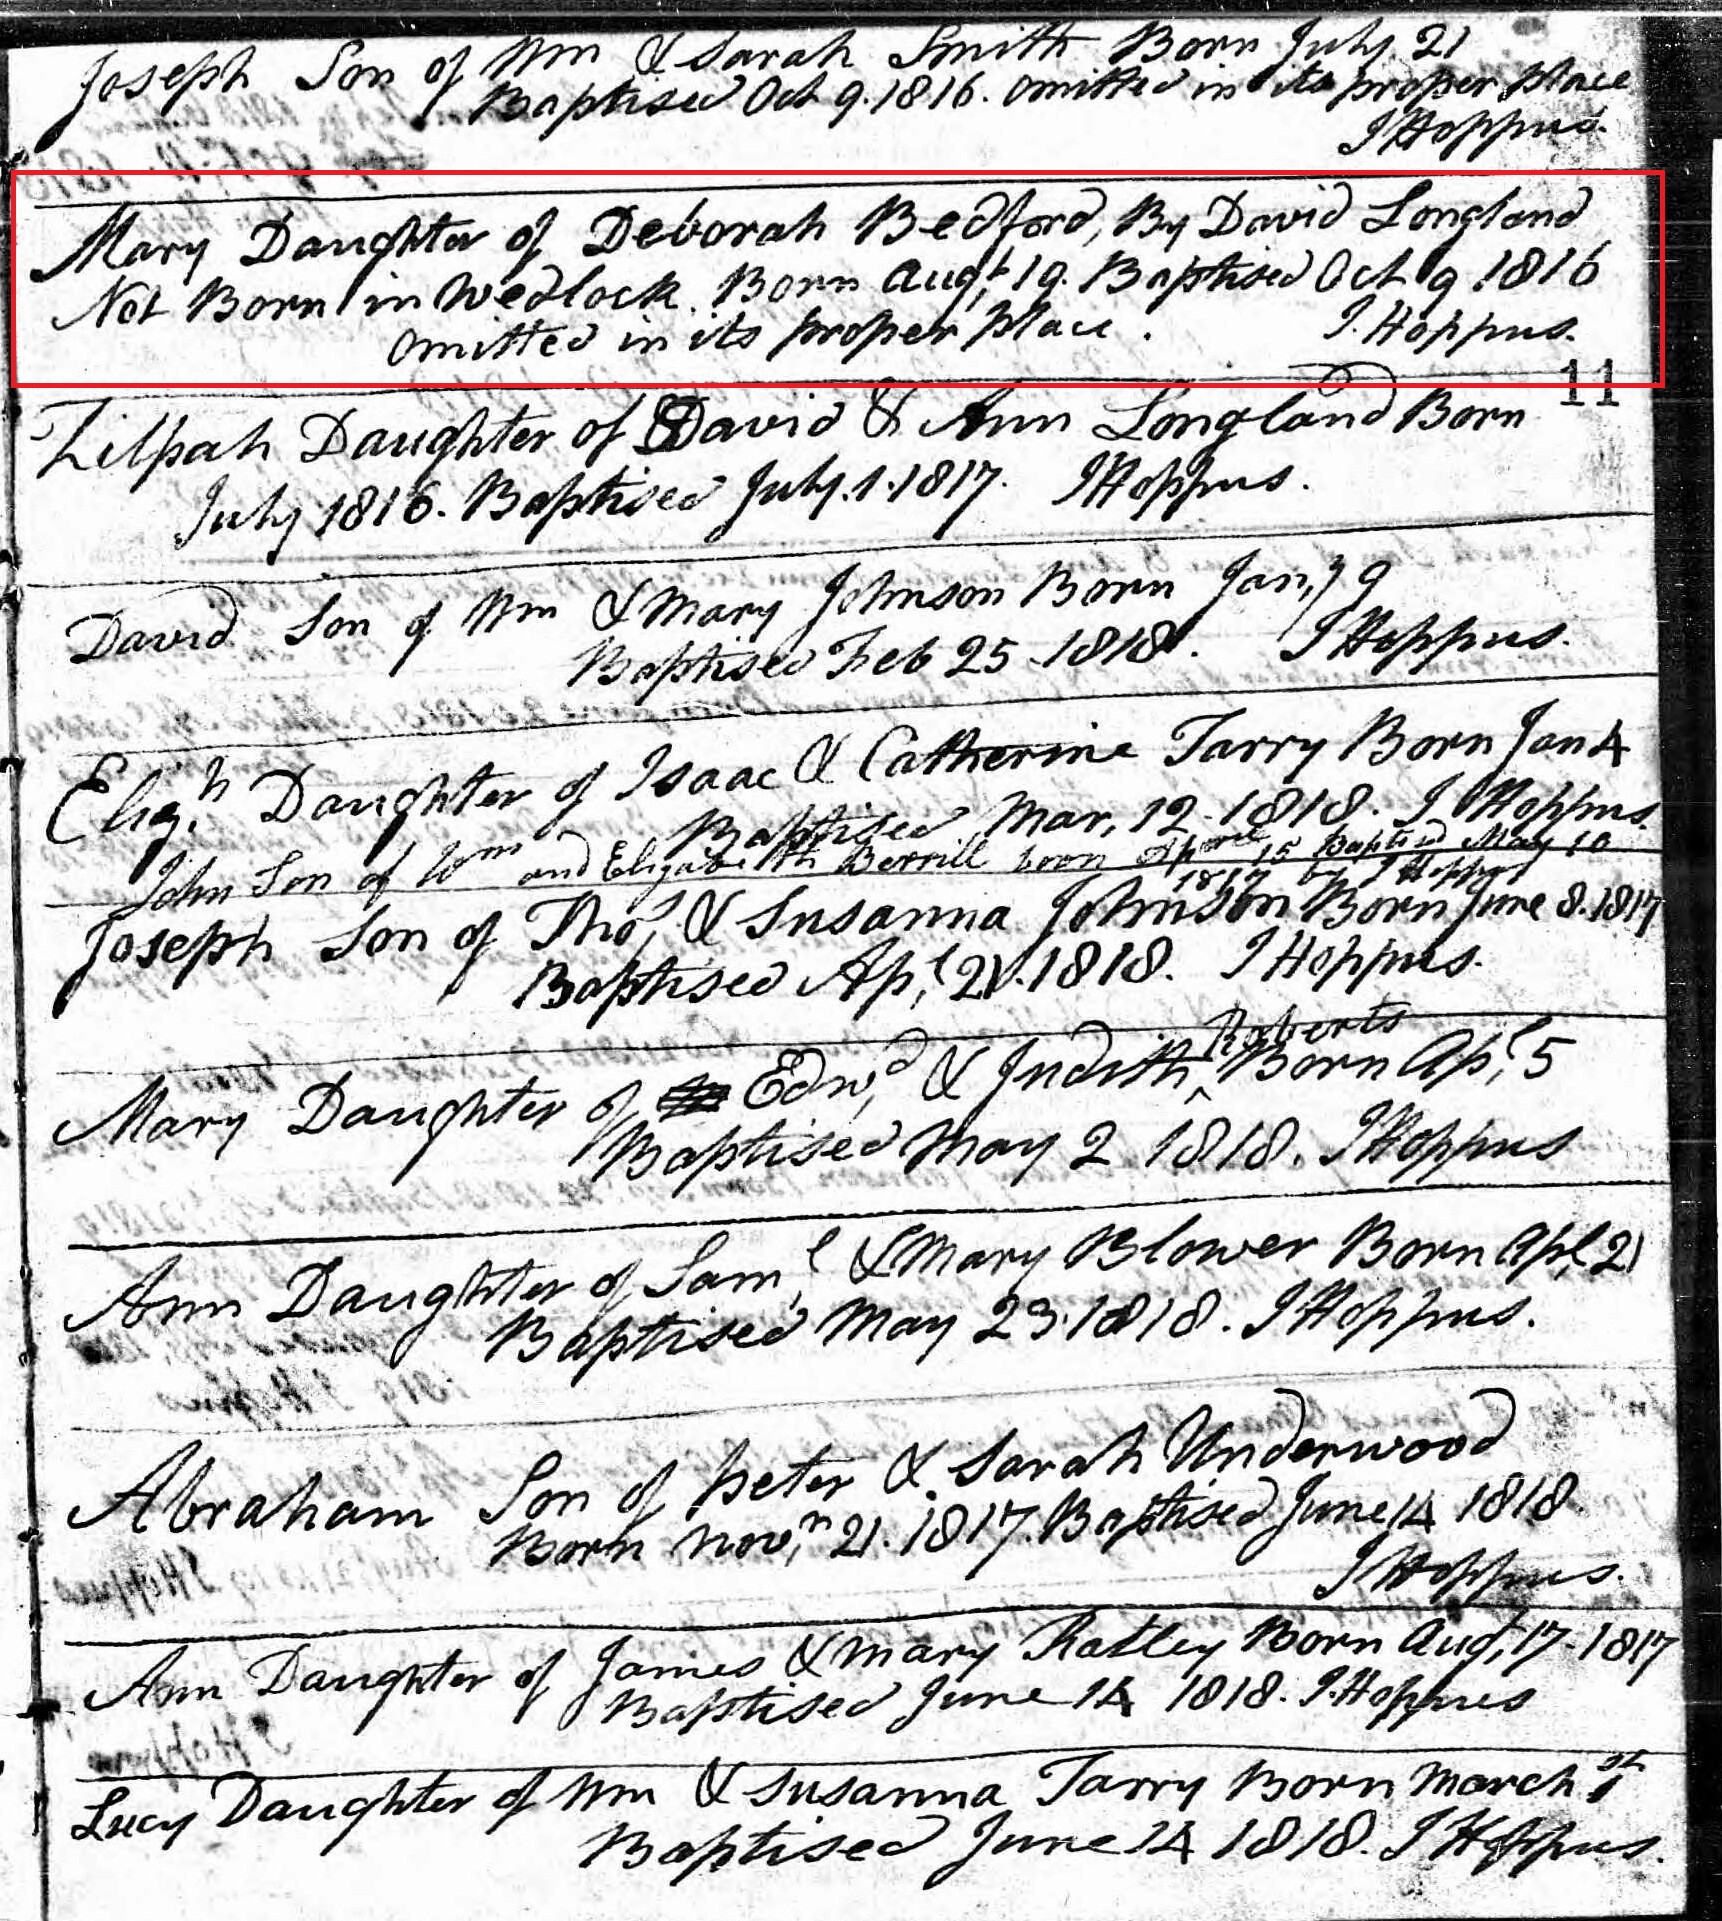 Joseph Son of Wm & Sarah Smith Born July 21
Baptised Oct 9. 1816. omitted in its proper place
J Hoppus.
Mary Daughter of Deborah Bedford, By David Longland
Not Born in Wedlock. Born Augt, 19. Baptised Oct 9 1816
omitted in its proper place. J. Hoppus.
11
Zilpah Daughter of David & Ann Longland Born
July 1816. Baptised July. 1. 1817. J Hoppus.
David Son of Wm & Mary Johnson Born Jany, 9
Baptised Feb 25. 1818. J Hoppus.
Elizh. Daughter of Isaac & Catherine Tarry Born Jan 4
Baptised Mar, 12. 1818. J Hoppus.
John Son of Wm and Elizabeth Berrill born 15 Baptisd May 10
1817 by J Hoppus
Joseph Son of Thos, & Susanna Johnson Born June 8. 1817
Baptised Apl, 21. 1818. J Hoppus.
Mary Daughter of Edwd, & Judith Roberts Born Apl, 5
Baptised May 2 1818. J Hoppus
Ann Daughter of Saml, & Mary Blower Born Apl, 21
Baptised May 23. 1818. J Hoppus.
Abraham Son of Peter & Sarah Underwood
Born Novn, 21. 1817. Baptised June 14 1818.
J Hoppus.
Ann Daughter of James & Mary Ratley Born Augt, 17. 1817
Baptised June 14 1818. J. Hoppus
Lucy Daughter of Wm & Susanna Tarry Born March 1st
Baptised June 14 1818. J Hoppus.